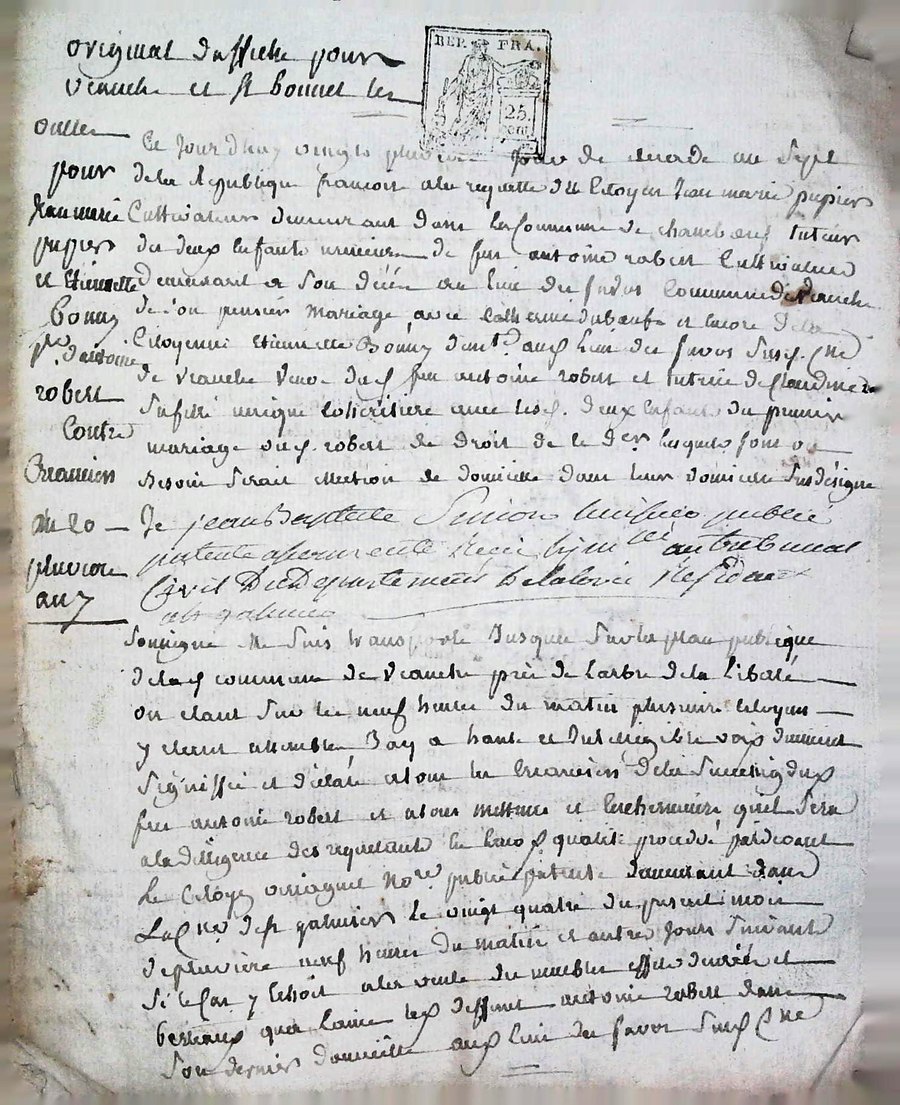 original daffiche pour
veauche et st bonnet les
oulles
REP. FRA.
25.
cent.
pour
jean marie
pupier
et Etiennette
Bonny
d'antoine
robert
Contre
Creanciers
du 20
pluviose
an 7
Ce jourdhuy vingt pluviose jour de decade an Sept
de la republique françoise a la requette du Citoyen Jean marie pupier
Cultivateur demeurant dans la Commune de chambœuf tuteur
des deux Enfants mineurs de feu antoine robert Cultivateur
demeurant a Son décés au lieu des favos Commune de veauche
de Son premier mariage avec Catherine dubœuf et encore de la
Citoyenne Etiennette Bonny aux lieu des favos Susd. Cne
de veauche veuve dud. feu antoine robert et tutrice de Claudine
Sa fille unique Coheritiere avec lesd. deux Enfants du premier
mariage dud. robert de droit de le der lesquels font au
Besoin Serait ellection de domicille dans leur domicille Sus désigné
Je jean Baptiste huissier public
patenté au tribunal
Civil Du Departement De la loire Résidant
a St galmier
Soussigné me Suis transporté Jusques Sur la place publique
de lad. commune de veauche près de l'arbre de la Liberté
ou etant Sur les neuf heures du matin plusieurs Citoyens
y etant assemblés Jay a haute et Intelligible voix
Signiffié et déclaré a tous les Creanciers de la Succession dud.
feu antoine robert et a tous metteurs et Encherisseurs quil Sera
a la dilligence des requerants En lad. qualité procédé pardevant
Le Citoyen nore public patenté demeurant dans
La Cne de St galmier le vingt quatre du present mois
de pluviose neuf heures du matin et autres Jours Suivants
Si le Cas y Echoit a la vente des meubles effets denrées et
bestiaux qua laissé led. deffunt antoine robert dans
Son dernier domicille aux lieu des favos Susd. Cne